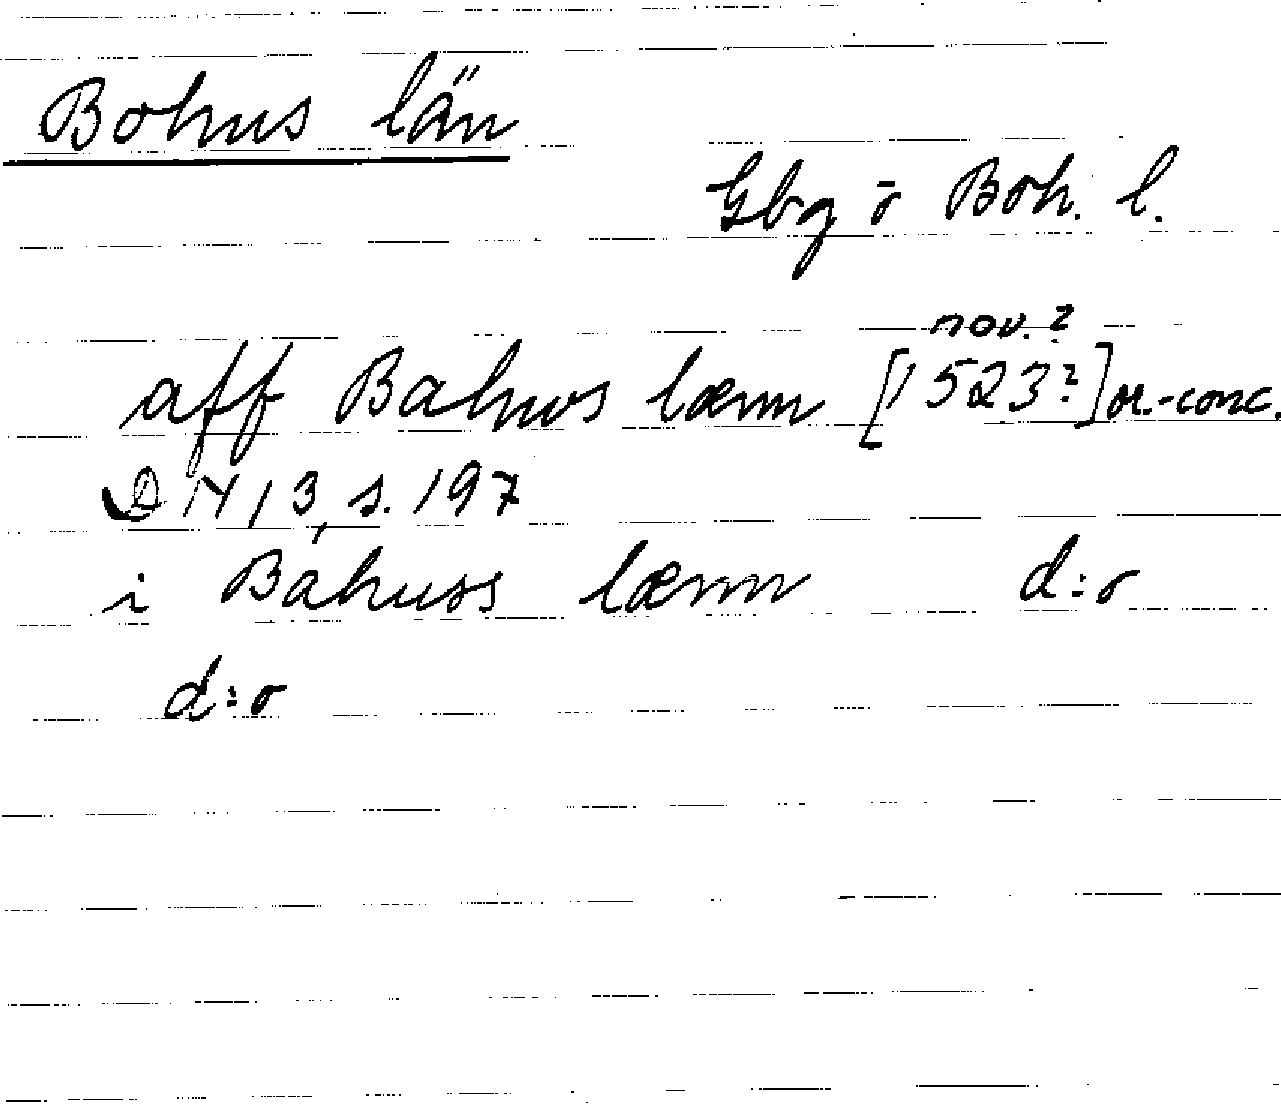 Bohus län
Gbg o Boh. l.
nov. ?
aff Bahws lænn [1523?] or.-conc.
DN, 3, s. 197
i Bahuss lænn d:o
d:o